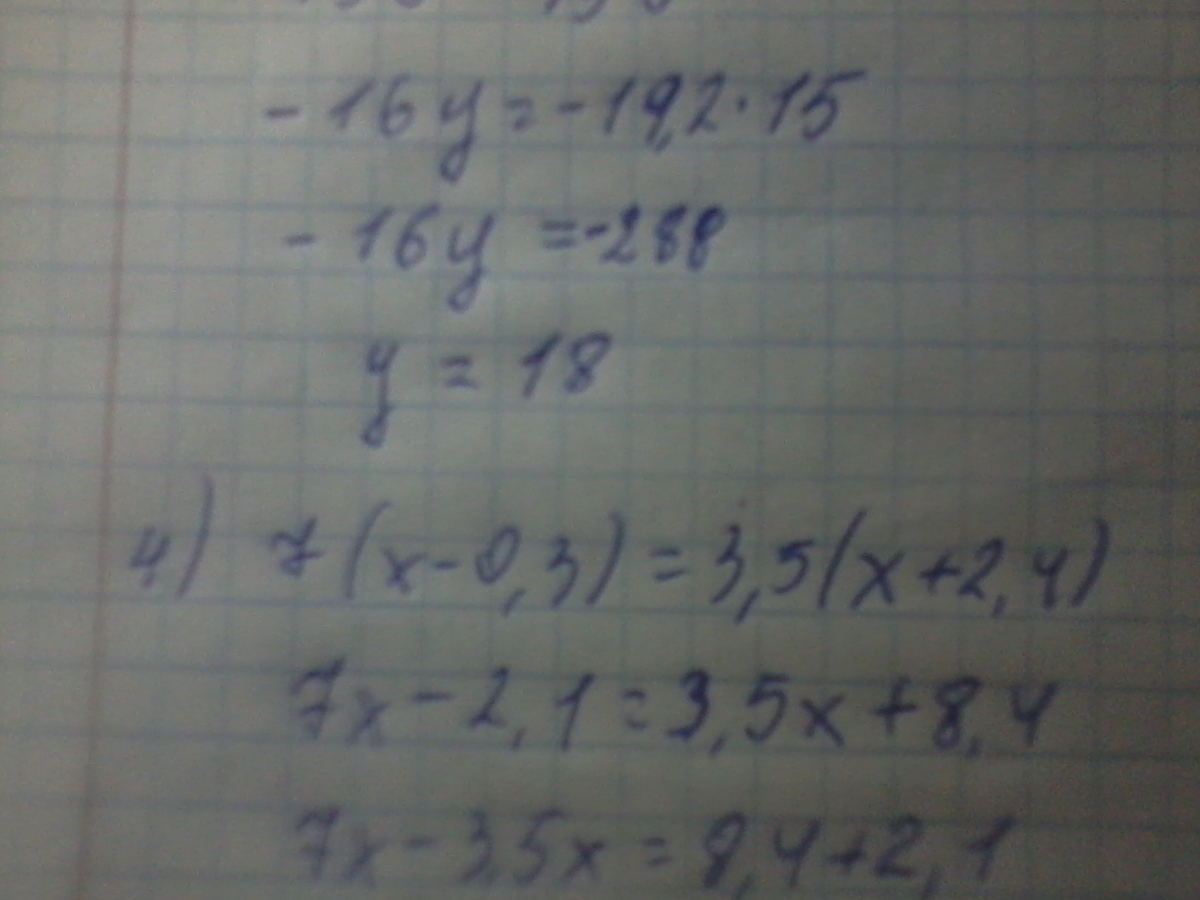 - 16y = -19,2 · 15
- 16y = -288
y = 18
4) 7(x - 0,3) = 3,5(x + 2,4)
7x - 2,1 = 3,5x + 8,4
7x - 3,5x = 8,4 + 2,1